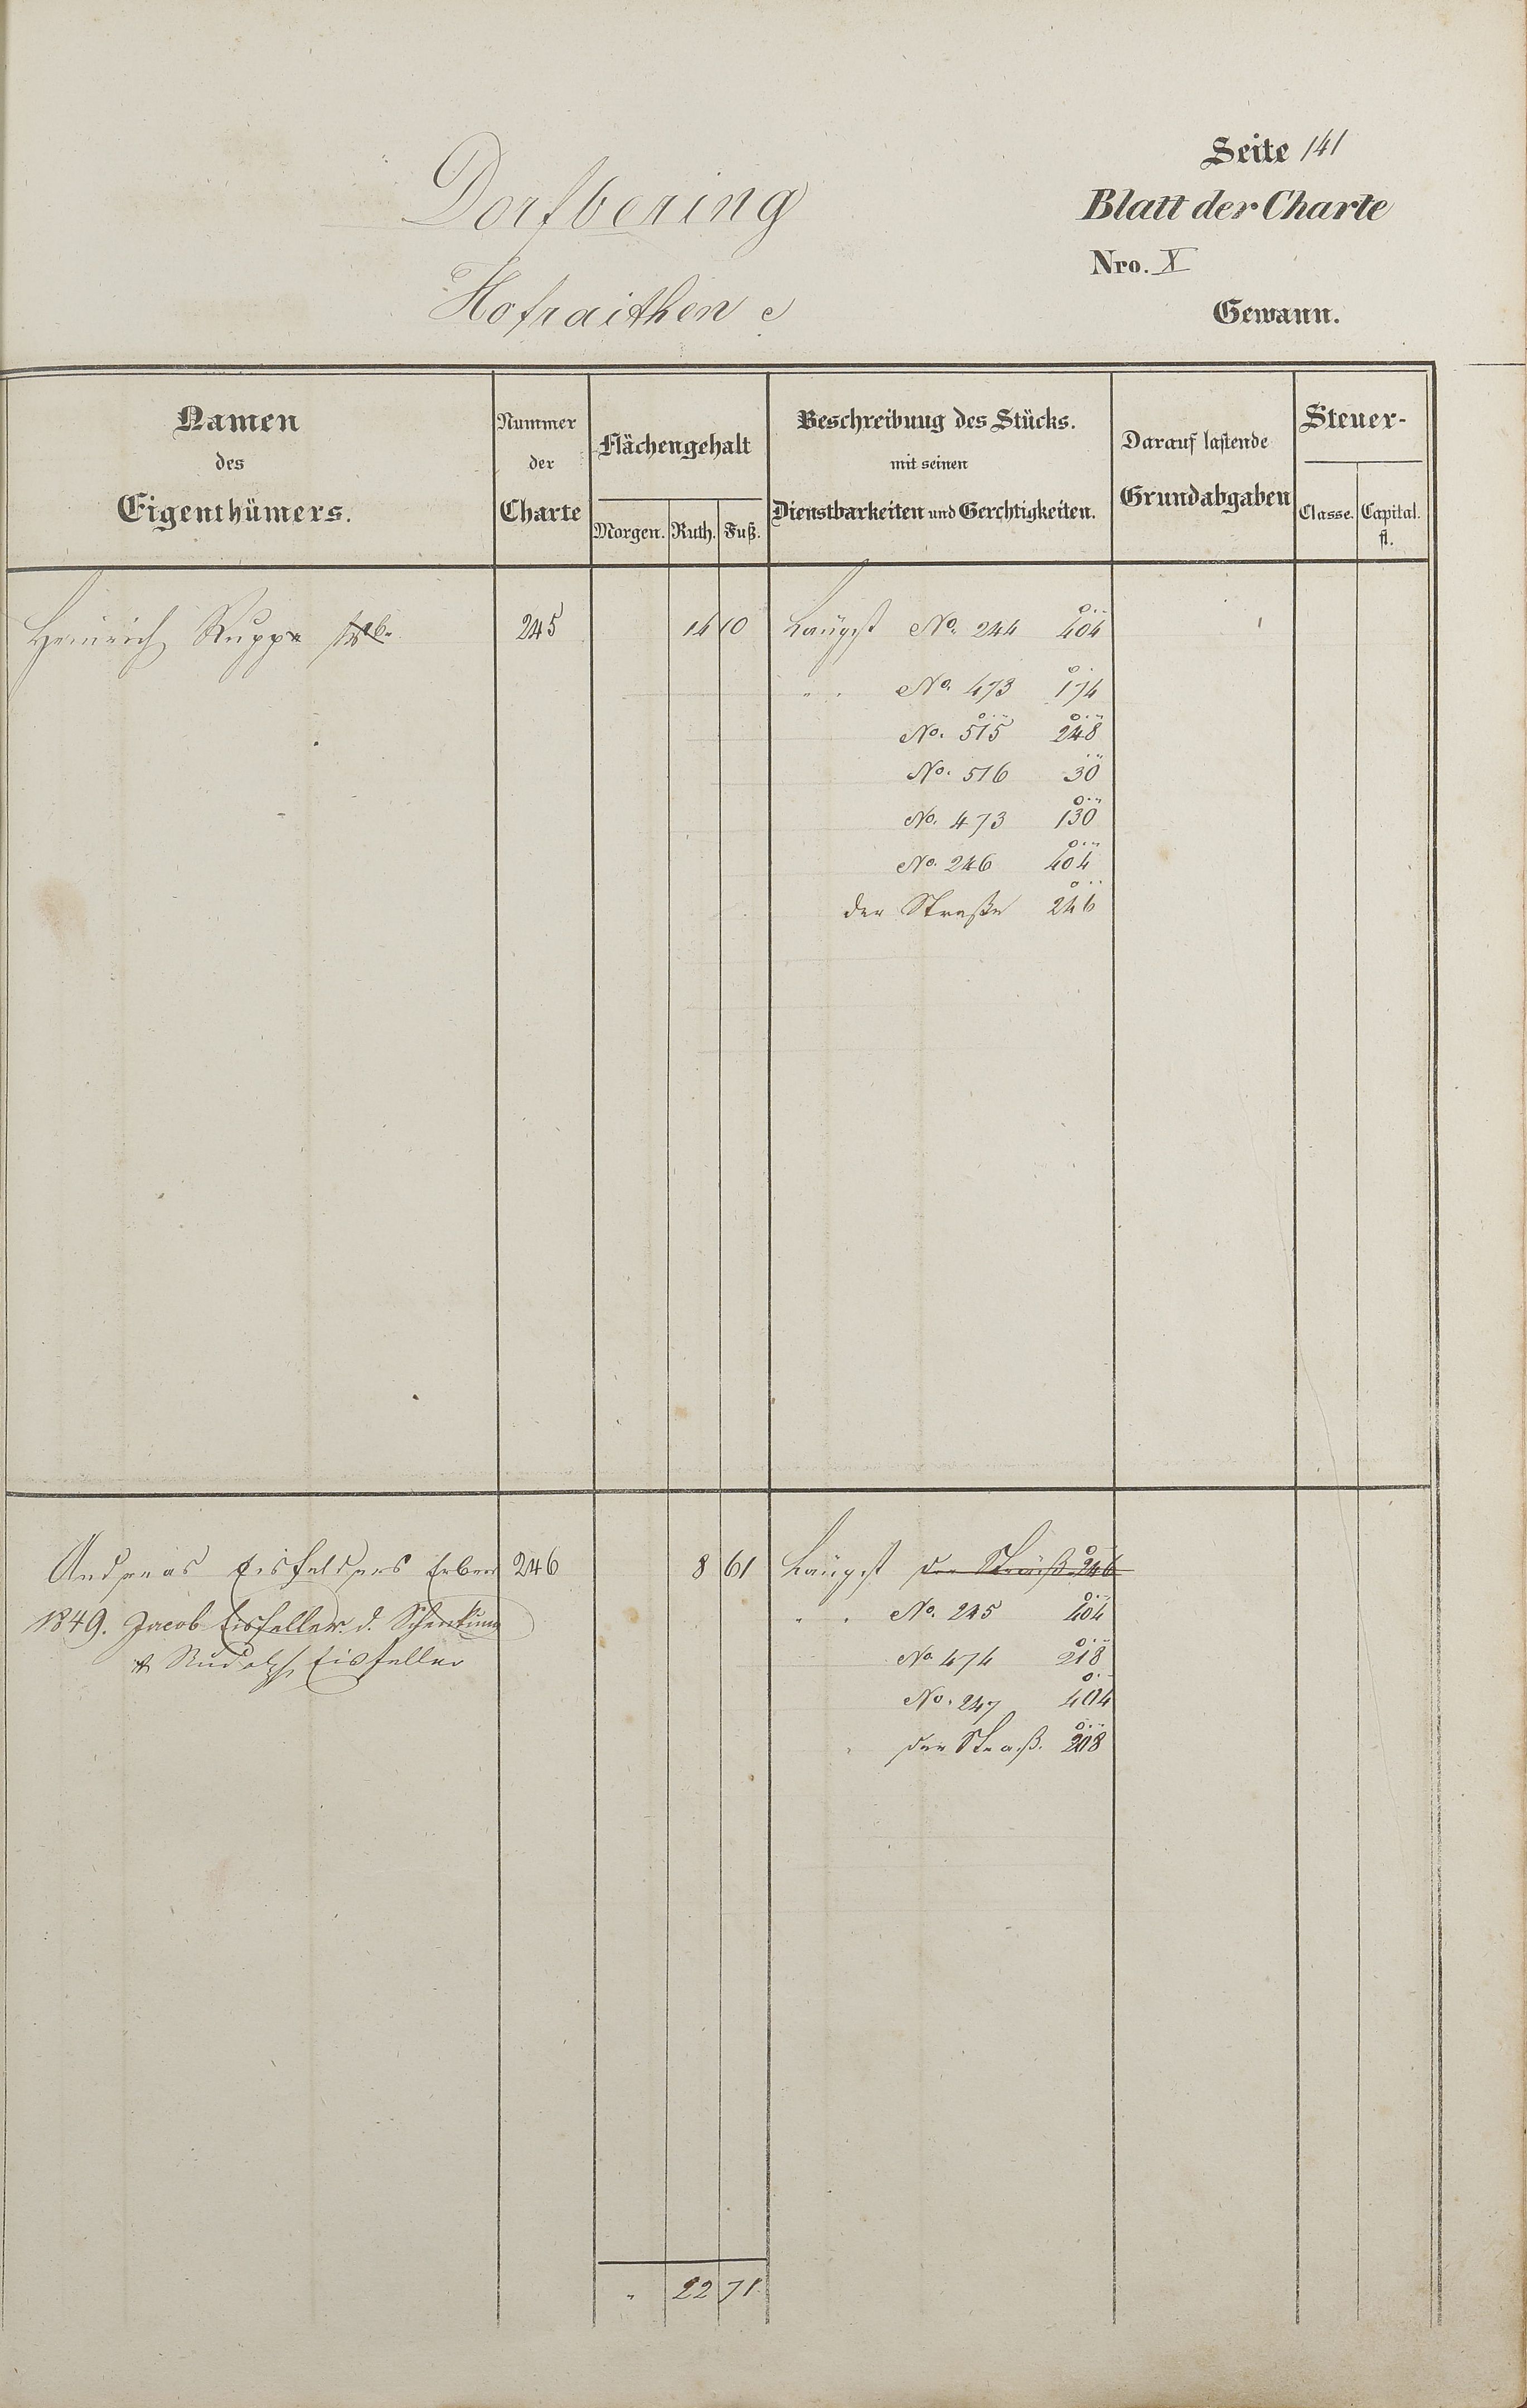 Seite 141
Dorfbering
Blatt der Charte
Nro. X
Hofraithen
Gewann.
Namen des Eigenthümers.
Nummer der Charte
Flächengehalt
Morgen. Ruth. Fuß.
Beschreibung des Stücks. mit seinen Dienstbarkeiten und Gerchtigkeiten.
Darauf lastende Grundabgaben
Steuer-
Classe. Capital. fl.
Heinrich Rupp 245 14 10 Längst No. 244 404
" . No. 473 174
No. 515 248
No. 516 30
No. 473 130
No. 246 404
der Straße 246
Andreas Eisfelders Erben 246 8 61 Längst der Straß 246
1849. Jacob Eisfeller d. Schenkung " . No. 245 404
& Rudolph Eisfeller No. 474 218
No. 247 404
der Straß. 208
" 22 71